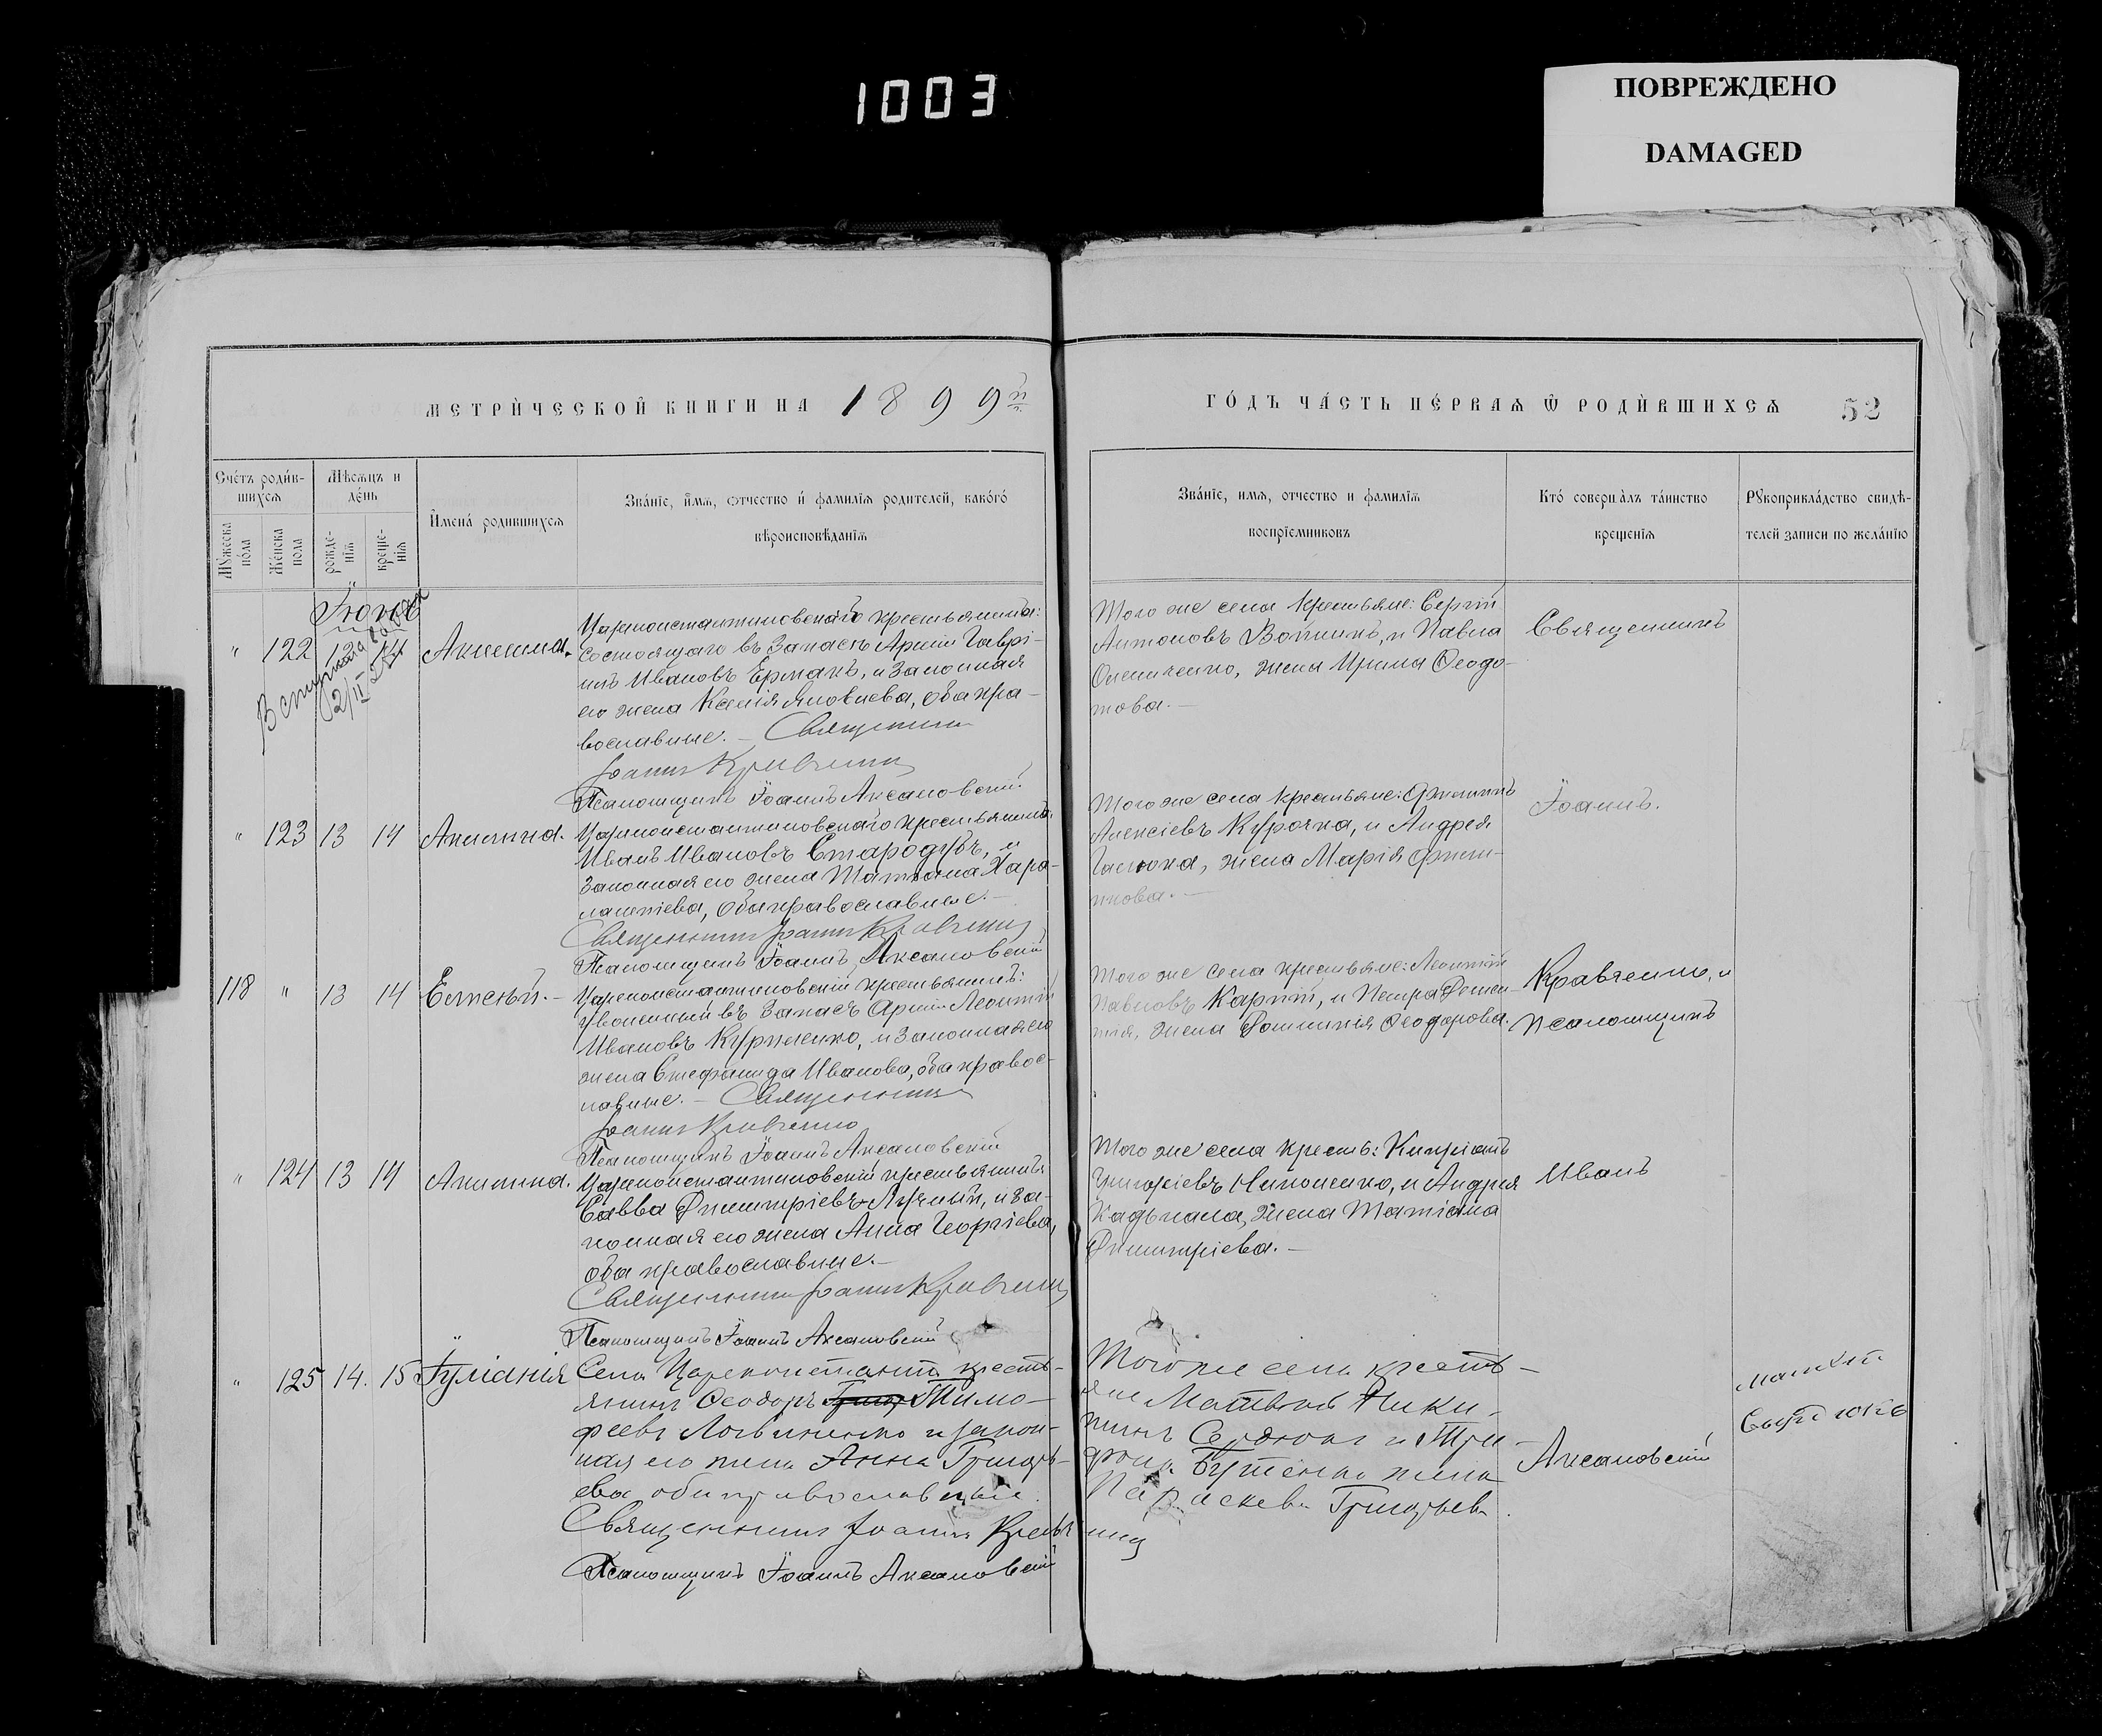 1003
ПОВРЕЖДЕНО
DAMAGED
МЕТРИ́ЧЕСКОЙ КНИГИ НА 1899й
ГО́ДЪ ЧА́СТЬ ПЕ́РВАѦ Ѿ РОДИ́ВШИХСѦ 52
Сче́тъ роди́в-
шихсѧ
Мѣсѧцъ и
де́нь
Имена́ родившихсѧ
Зва́нїе, и́мѧ, отчество и́ фамилїѧ родителей, како́го́
вѣроисповѣданїѧ
Мꙋжеска
по́ла
Же́нска
пола
рожде-
нїѧ
креще-
нїѧ
Зва́нїе, имѧ, отчество и фамилїѧ
воспрїемниковъ
Кто́ соверша̀лъ та́инство
крещенїѧ
Рꙋкоприкла́дство свидѣ-
телей записи по жела́нїю
Іюнь
" 122 13 14 Акилина.
Цареконстантиновскаго крестьянина:
состоящаго въ Запасѣ Арміи Гаврі-
илъ Ивановъ Ермакъ, и Законная
его жена Ксенія Яковлева, оба пра-
вославные. — Священник
Іоанн Кравченко
Псаломщикъ Іоаннъ Аксановскій
Того же села крестьяне: Сергій
Антоновъ и Павла
жена Ирина Ѳеодо-
това. —
Священникъ
" 123 13 14 Акилина.
Цареконстантиновскаго крестьянина:
Иванъ Ивановъ Стародубъ, и
Законная его жена Татіана Хара-
лампіева, оба православные. —
Священник Іоанн Кравченко
Псаломщикъ Іоаннъ Аксановскій
Того же села крестьяне:
Алексіевъ Курочка, и Андрея
жена Марія
Іоаннъ.
118 " 13 14 Елисей. —
Цареконстантиновскій крестьянинъ:
уволенный въ Запасъ Арміи Леонтій
Ивановъ Куриленко, и Законная его
жена Стефанида Иванова, оба правос-
лавные. — Священник
Іоанн Кравченко
Псаломщикъ Іоаннъ Аксановскій
Того же села крестьяне: Леонтій
Павловъ Карпій, и Петра
жена Домникія Ѳеодорова.
Кравченко, и
псаломщикъ
" 124 13 14 Акилина.
Цареконстантиновскій крестьянинъ:
Савва Димитріевъ Лучный, и за-
конная его жена Анна Георгіева,
оба православные. —
Священник Іоанн Кравченко
Псаломщикъ Іоаннъ Аксановскій
Того же села крестья: Кипріанъ
Григоріевъ Никоненко, и Андрея
жена Татіана
Димитріева. —
Иванъ
" 125 14. 15 Іуліанія
Села Цареконстант. кресть-
янинъ Ѳеодоръ Тимо-
феевъ Логвиненко и закон-
ная его жена Анна Григорь-
ева оба православные.
Священник Іоанн Кравченко
Псаломщикъ Іоаннъ Аксановскій
Того же села кресть-
яне Матвей Ники-
тинъ Сердюкъ и Три-
фона Бутенко жена
Параскева Григорьева.
Аксановскій
Матвей
Сердюкъ